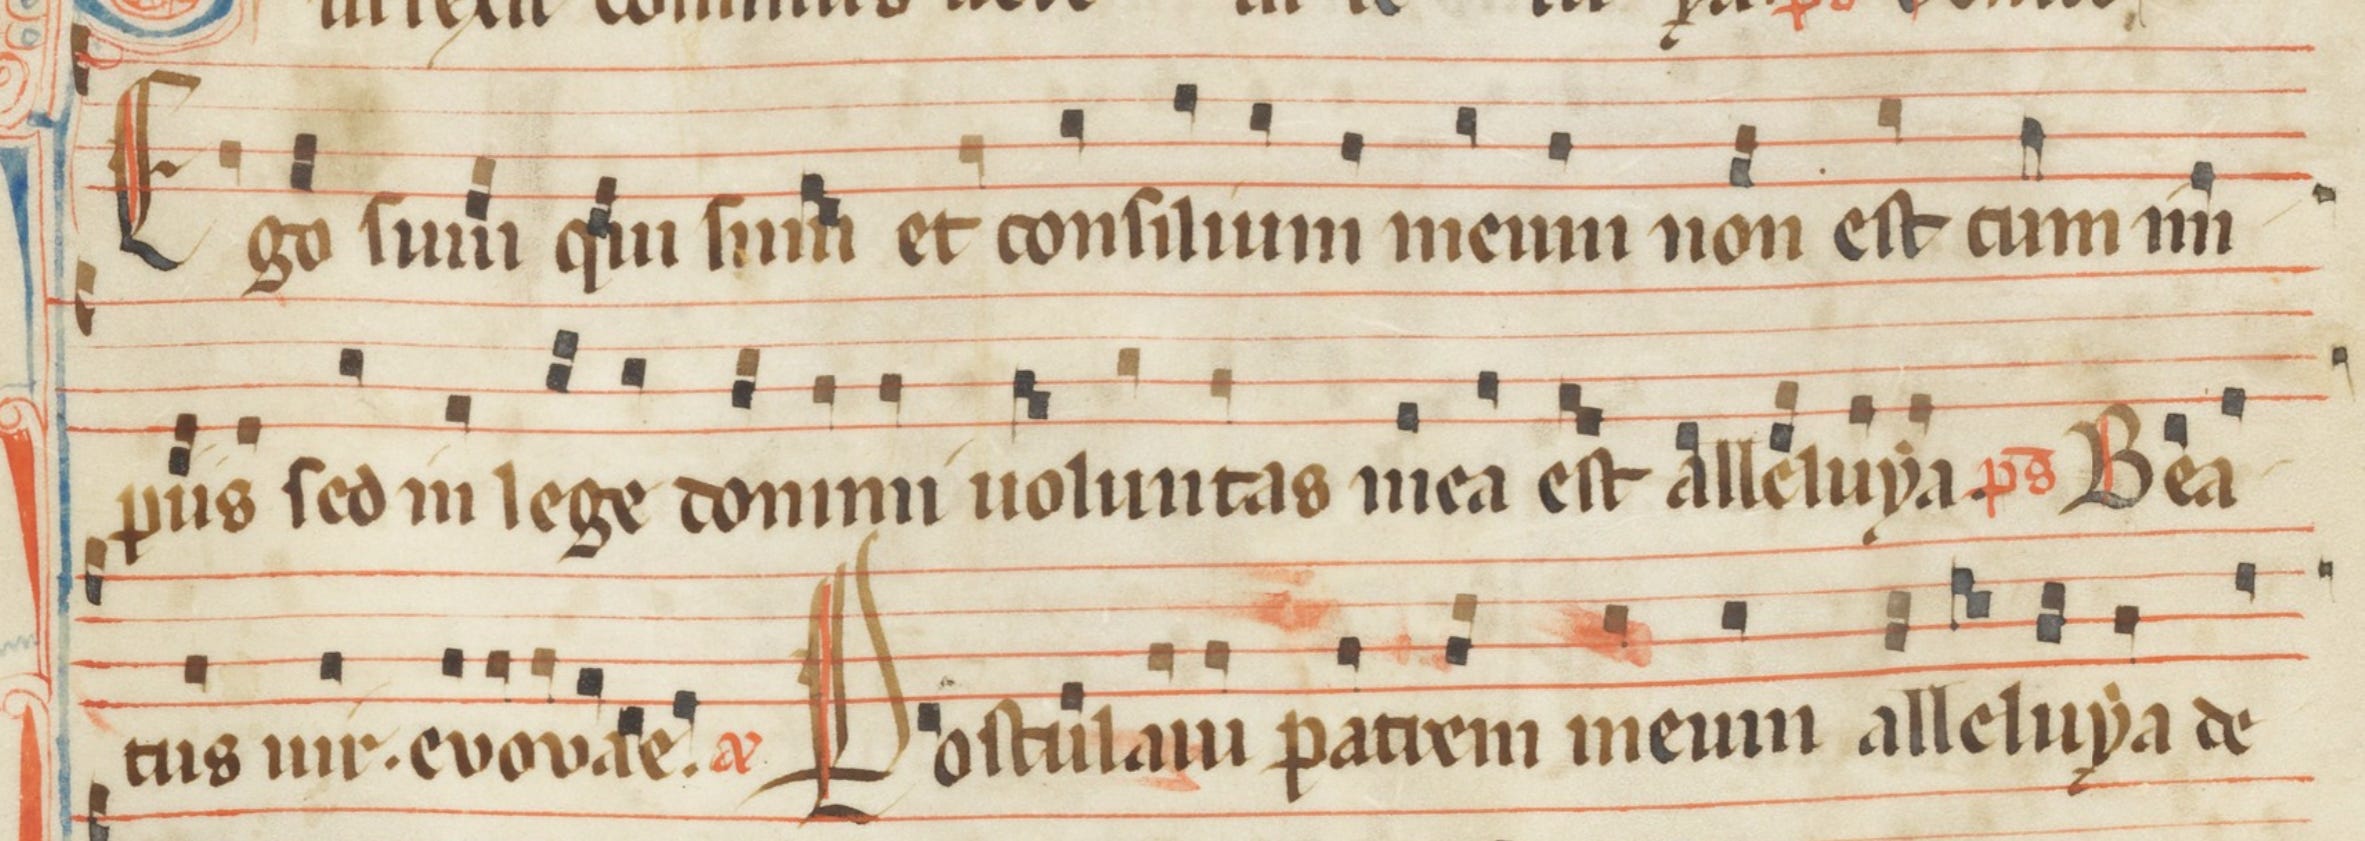 Ego sum qui sum et consilium meum non est cum im
piis sed in lege domini uoluntas mea est alleluya. ps Bea
tus uir. evovae. a Postulaui patrem meum alleluya de